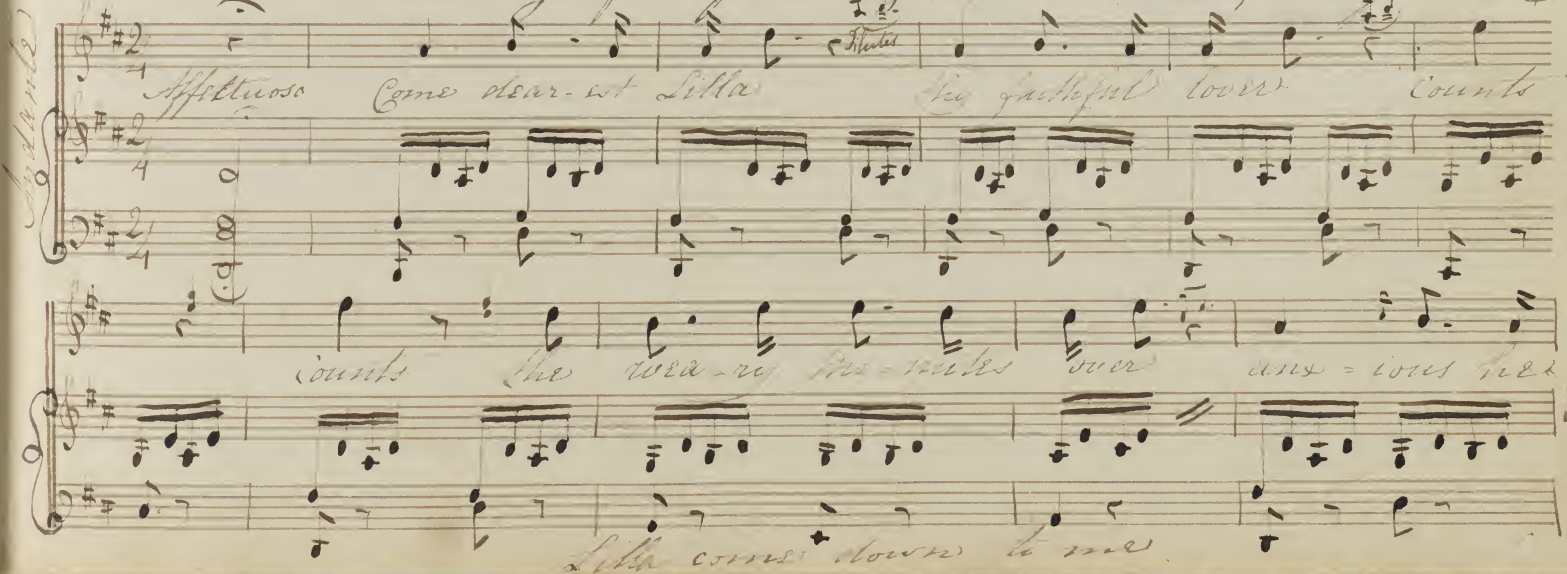 Andante
Flutes
Affettuoso Come dear-est Lilla thy faithful lover Counts
Counts the wea-ry mi-nutes over anx=ious he
Lilla come down to me